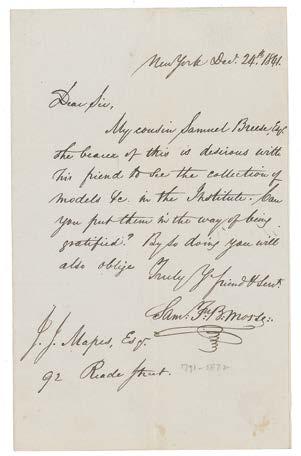 New York Dec. 24th 1841.
Dear Sir,
My cousin Samuel Breese, Esqr
the bearer of this is desirous with
his friend to see the collection of
models &c. in the Institute. Can
you put them in the way of being
gratified? By so doing you will
also oblige
Truly Yr friend & Servt.
Saml. F. B. Morse.
J. J. Mapes, Esqr.
92 Reade Street.
1791-1872